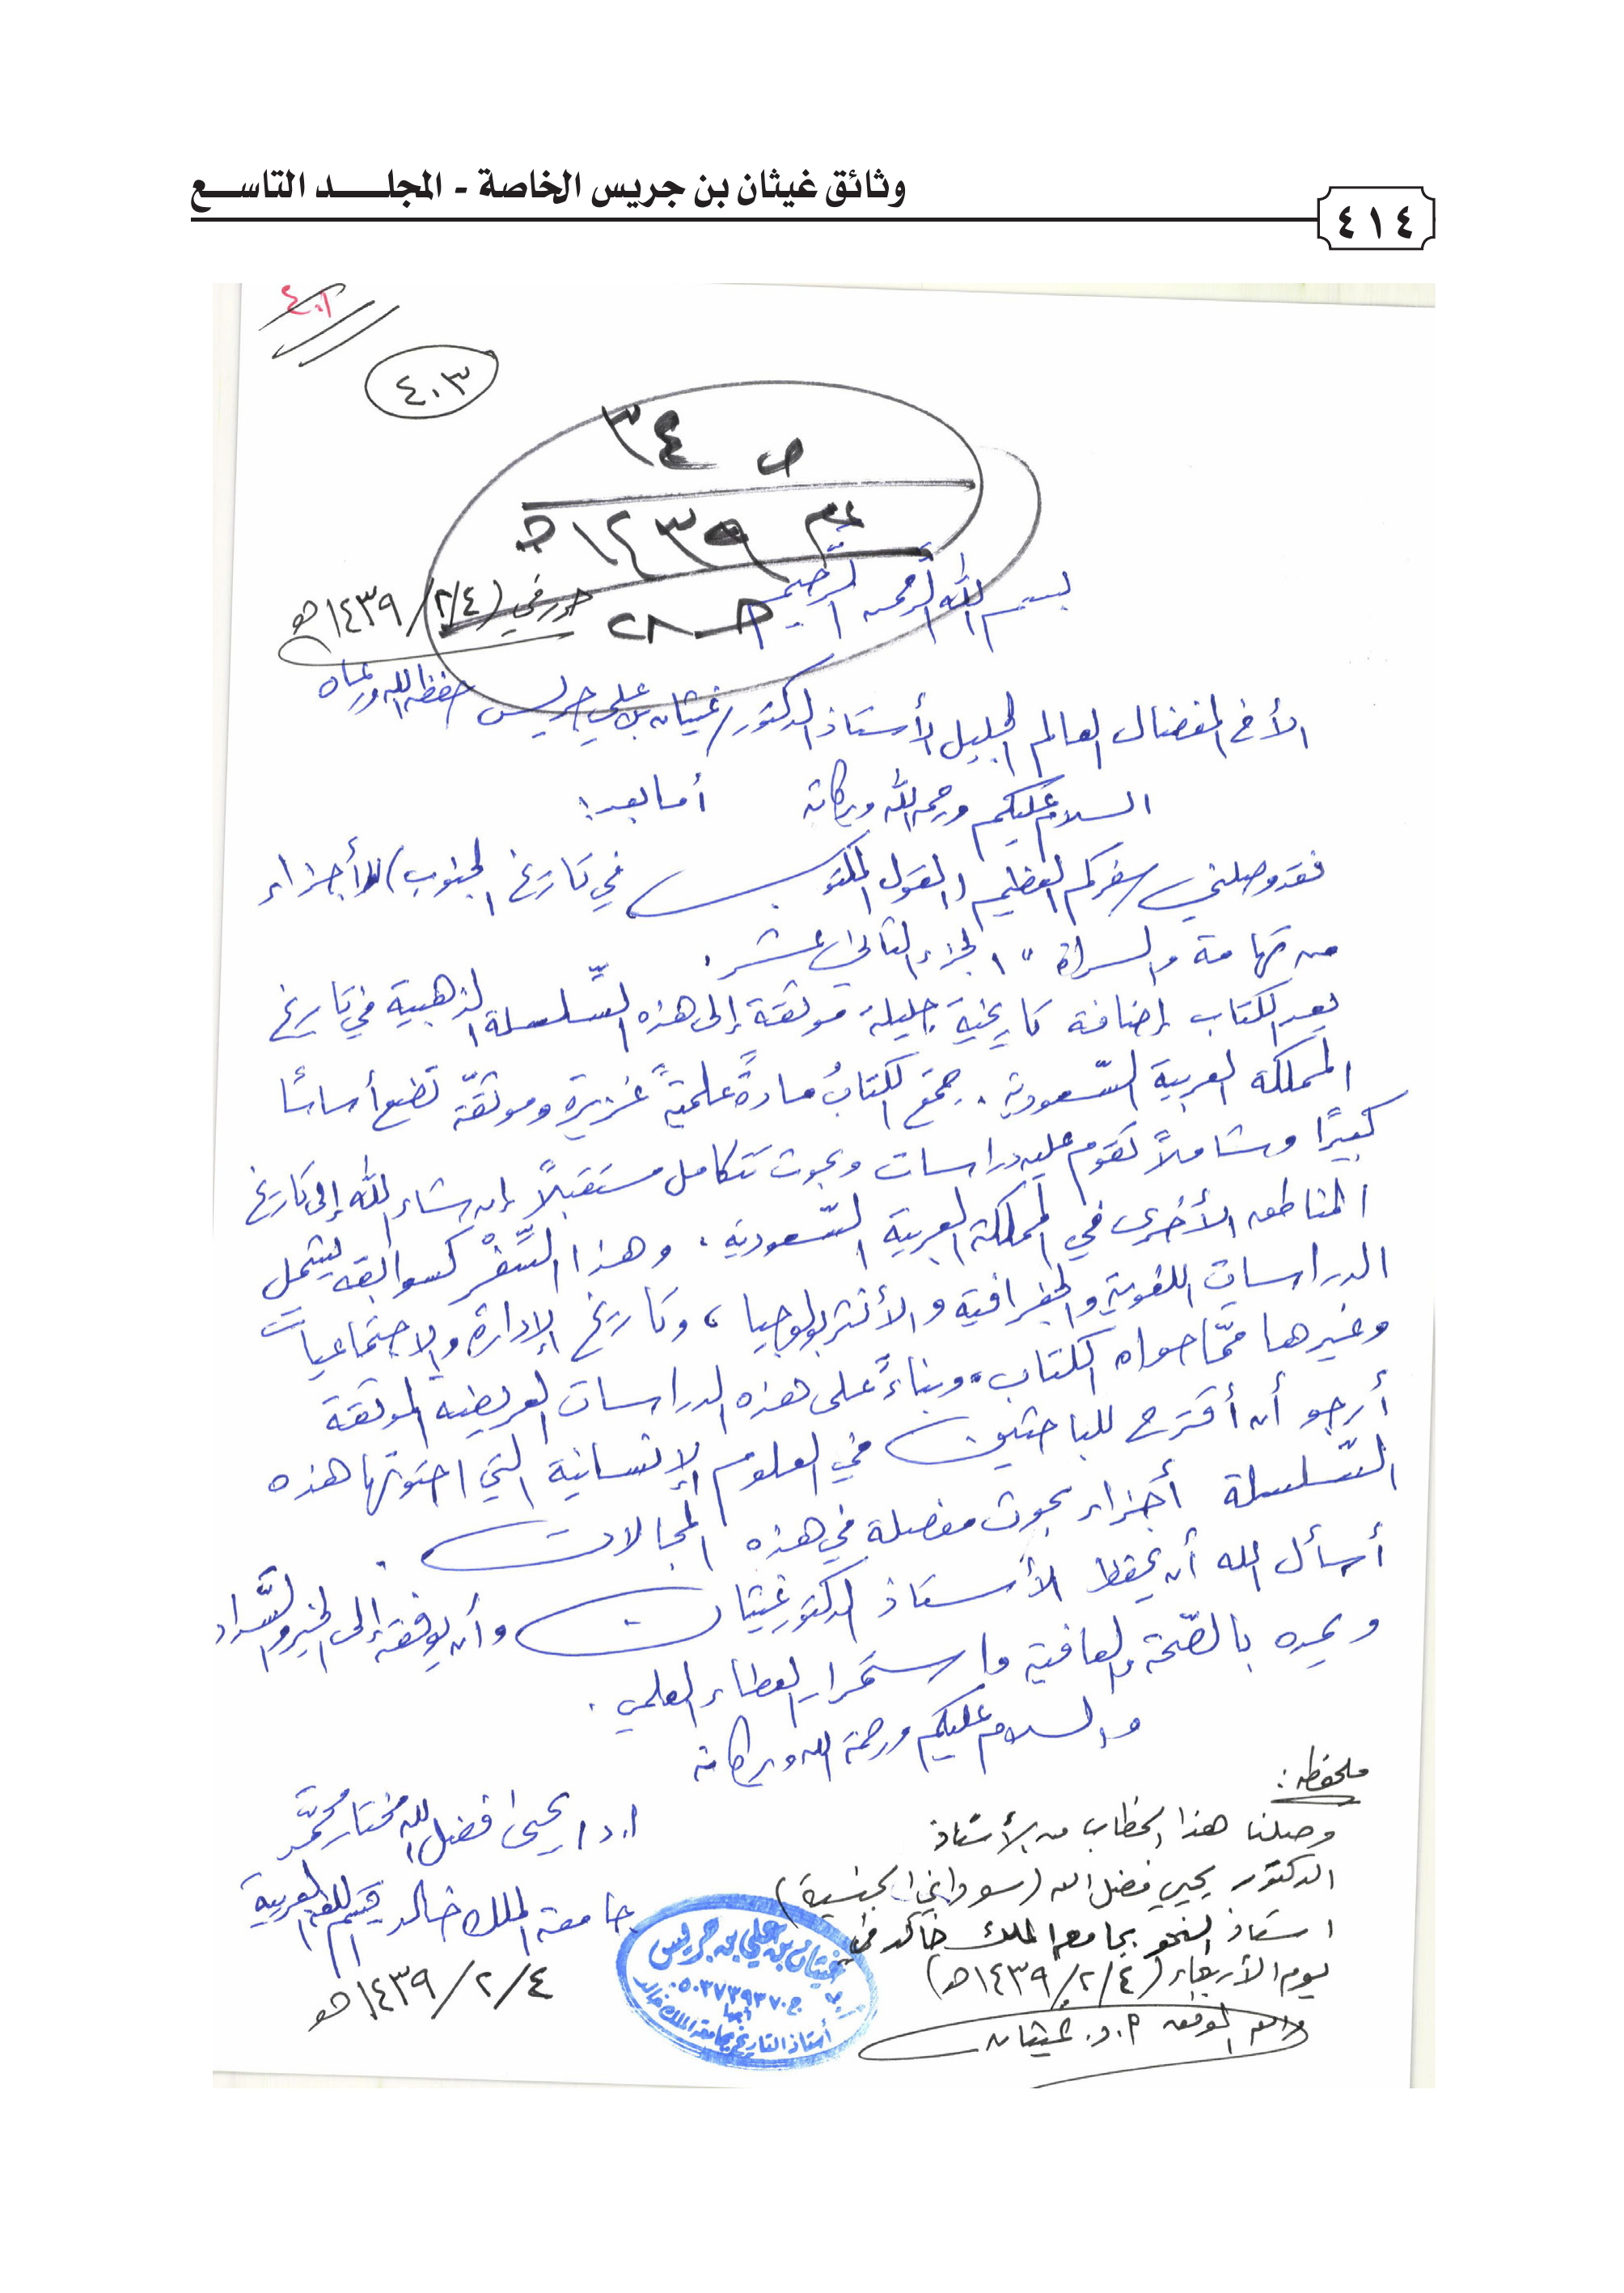 وثائق غيثان بن جريس الخاصة - المجلد التاسع
٤١٤
٤٠١
٤٠٣
ص ٣٤
عام ١٤٣٩هـ
حرر في (٢/٤/ ١٤٣٩هـ
بسم الله الرحمن الرحيم
الأخ المفضال العالم الجليل الأستاذ الدكتور/ غيثان بن علي جريس حفظه الله ورعاه
السلام عليكم ورحمة الله وبركاته أما بعد:
فقد وصلني سفركم العظيم (القول المكتوب في تاريخ الجنوب) لأجزاء
من تهامة والسراة " الجزء الثاني عشر.
يعد الكتاب إضافة تاريخية جليلة موثقة إلى هذه السِّلسلة الذهبية في تاريخ
المملكة العربية السّعودية. جمع الكتابُ مادةً علميةً غزيرة وموثّقة تضع أساسًا
كبيرًا وشاملاً تقوم عليه دراسات وبحوث تتكامل مستقبلاً إن شاء الله إلى تاريخ
المناطق الأخرى في المملكة العربية السّعودية. وهذا السِّفْر كسوابقه يشمل
الدراسات اللغوية والجغرافية والأنثربولوجيا، وتاريخ الإدارة والاجتماعيات
وغيرها ممّا حواه الكتاب. وبناءً على هذه الدراسات العريضة الموثقة
أرجو أن أقترح للباحثين في العلوم الإنسانية التي احتوتها هذه
السّلسلة أجزاء بحوث مفصلة في هذه المجالات.
أسأل الله أن يحفظ الأستاذ الدكتور غيثان وأن يوفقه إلى الخير والسَّداد
ويمده بالصّحة والعافية واستمرار العطاء العلمي.
والسلام عليكم ورحمة الله وبركاته
ا.د/ يحيى فضل الله مختار محمَّد
جامعة الملك خالد قسم اللغة العربية
٤/٢/١٤٣٩هـ
ملحوظة:
وصلنا هذا الخطاب من الأستاذ
الدكتور يحيى فضل الله (سوداني الجنسية)
استاذ النحو بجامعة الملك خالد في
يوم الأربعاء (٢/٤/ ١٤٣٩هـ)
والله الموفق ا.د. غيثان
غيثان بن علي بن جريس
ج ٠٥٠٣٧٣٩٣٧٠
أبها
أستاذ التاريخ بجامعة الملك خالد